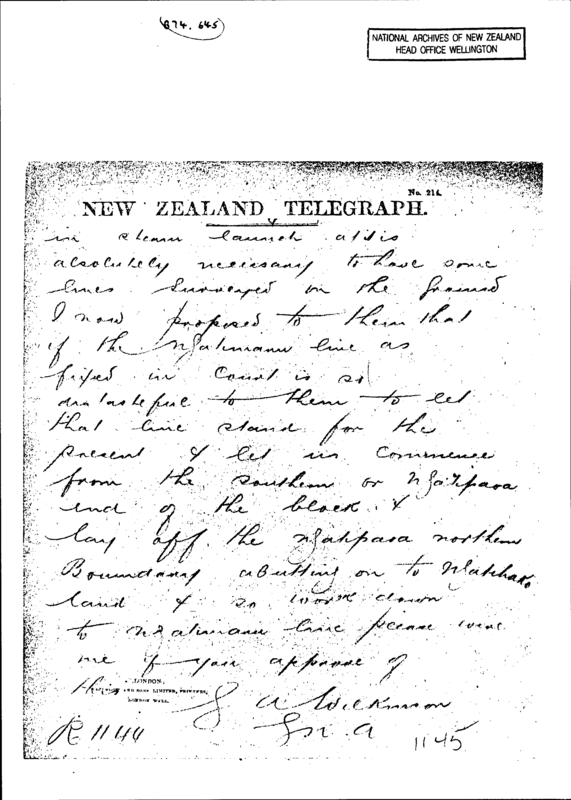 B74.645
NATIONAL ARCHIVES OF NEW ZEALAND
HEAD OFFICE WELLINGTON
No. 214.
NEW ZEALAND TELEGRAPH.
in steam launch as it is
absolutely necessary to have some
lines surveyed on the ground
I now proposed to them that
if the Ngatimaru line as
fixed in Court is so
distasteful to them to let
that line stand for the
present & let us commence
from the southern or Ngatipaoa
end of the block &
lay off the Ngatipaoa northern
Boundary abutting on to
land & so work down
to Ngatimaru line please wire
me if you approve of
this
LONDON,
AND SONS LIMITED, PRINTERS,
LONDON WALL.
G A Wilkinson
R 1144
1145